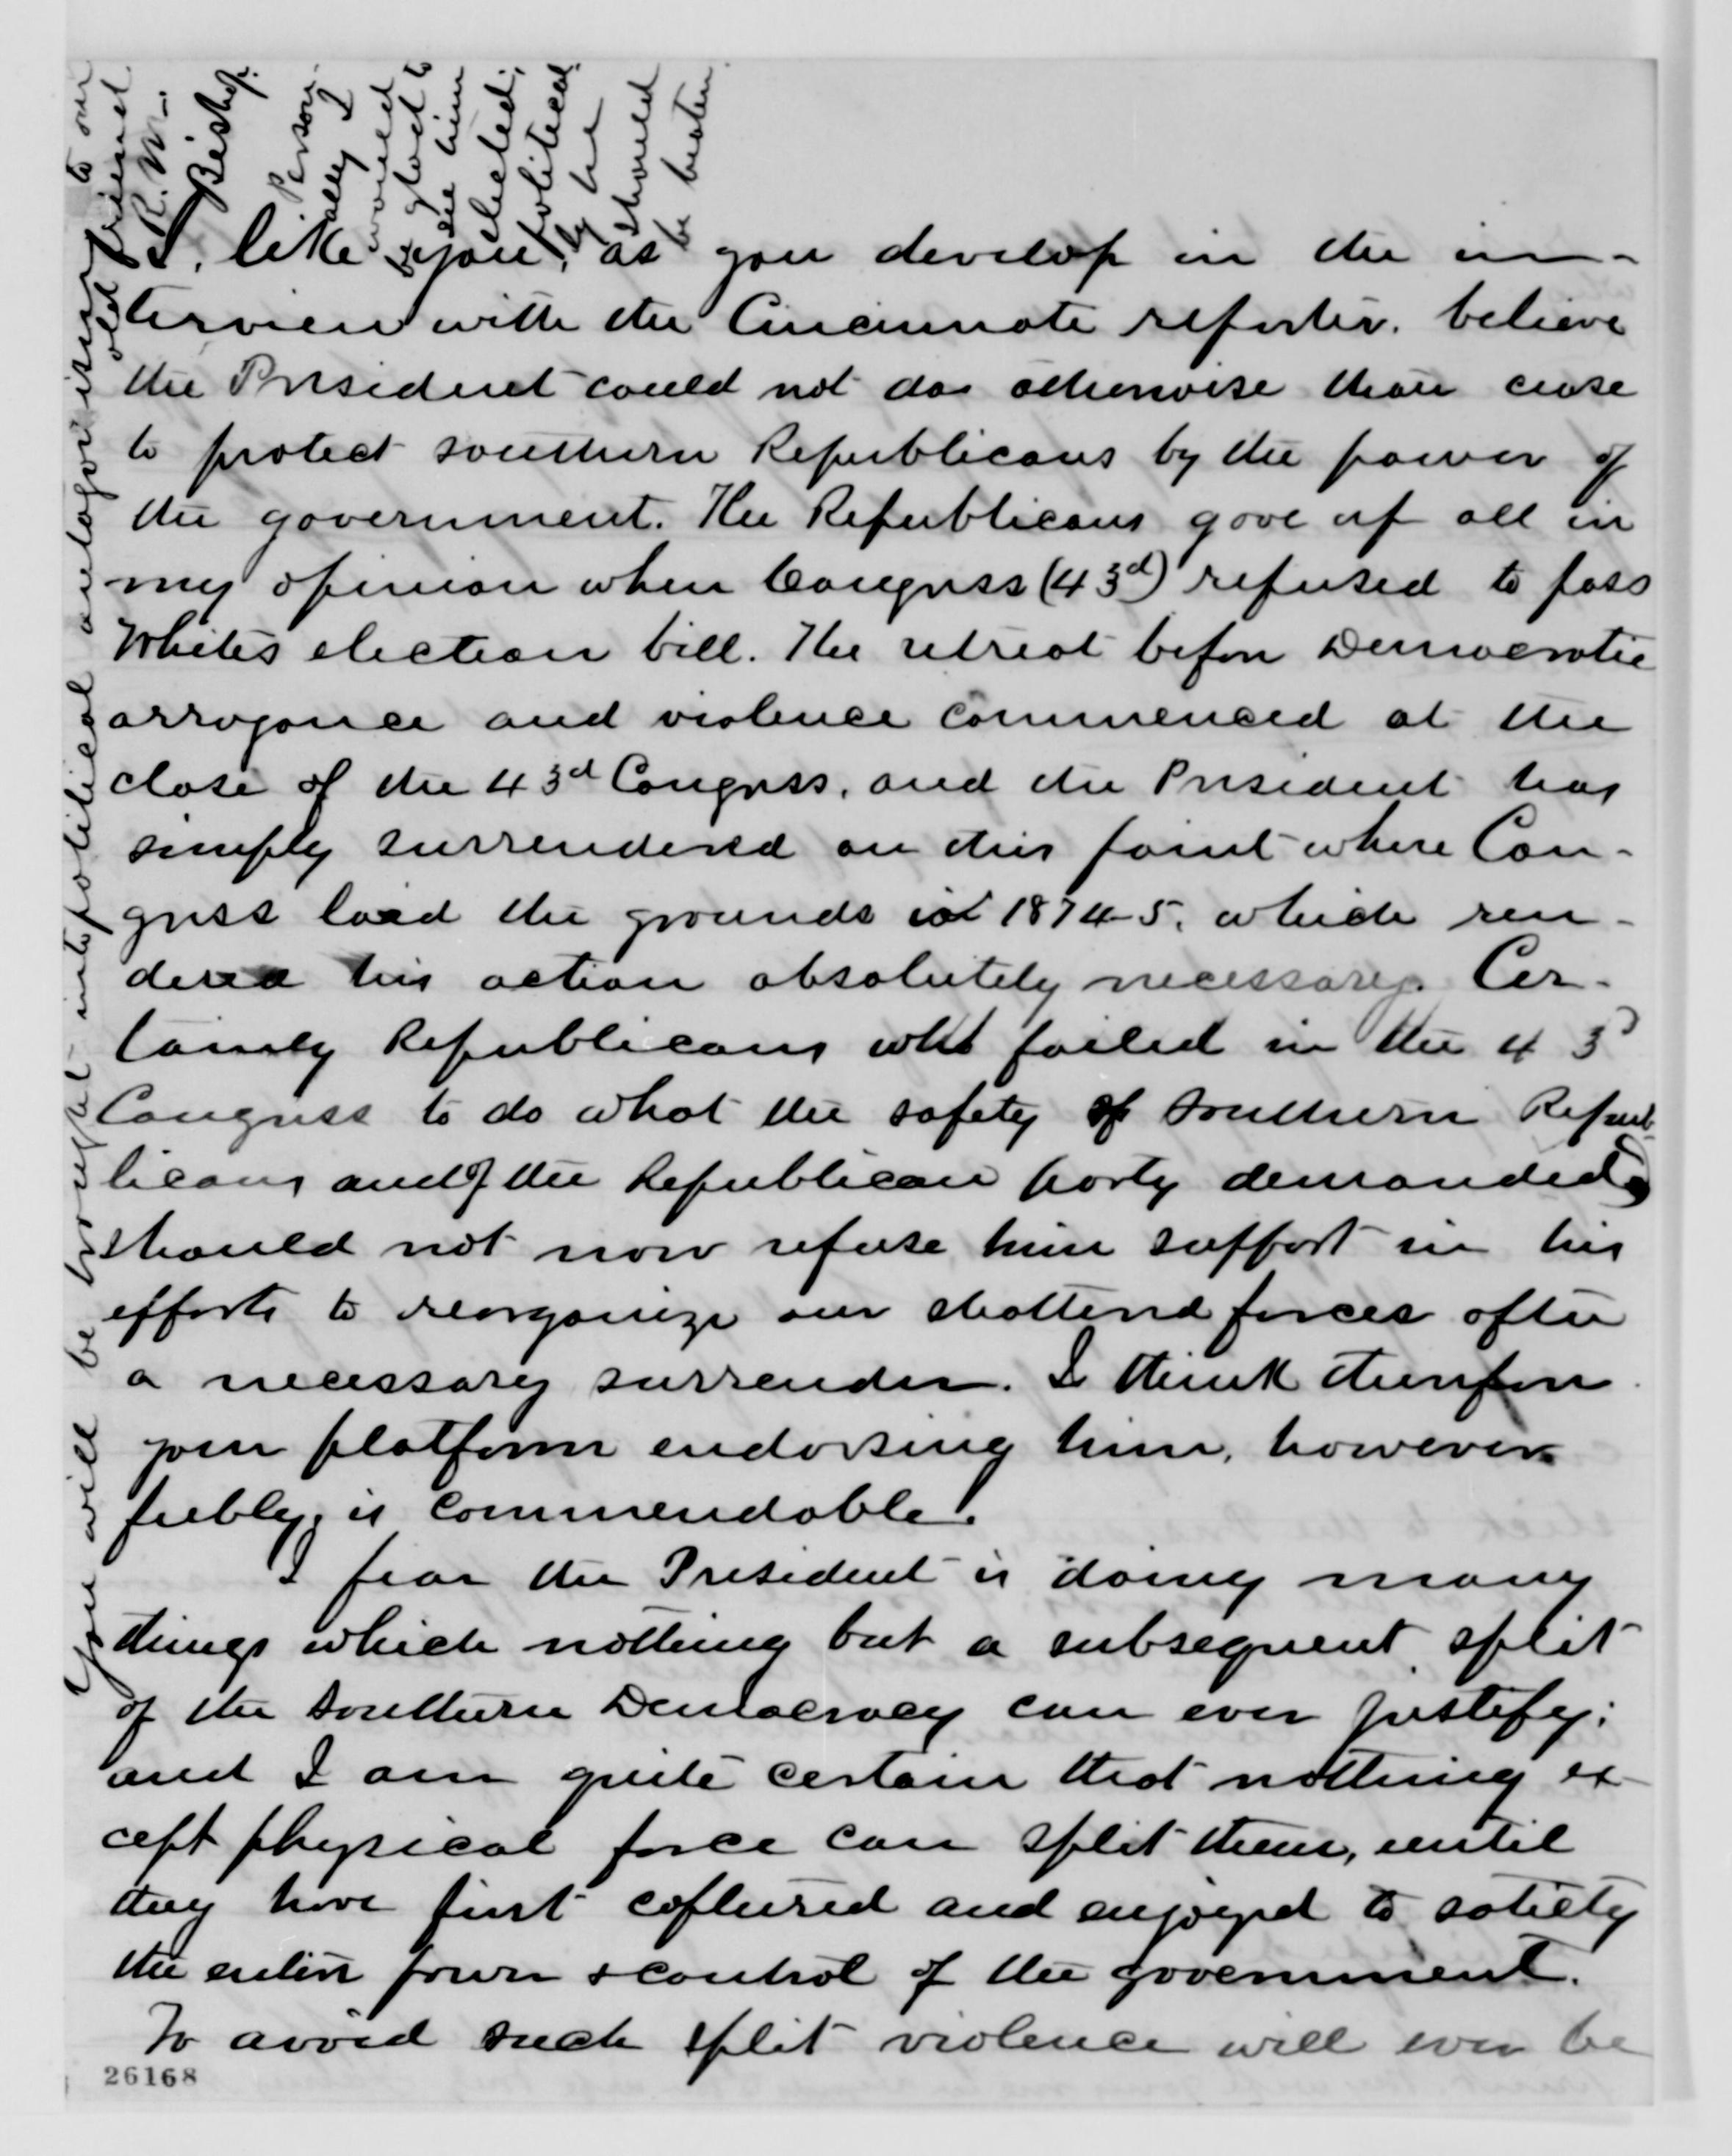 I, like you, as you develop in the in-
terview with the Cincinnati reporter, believe
the President could not do otherwise than cease
to protect southern Republicans by the power of
the government. The Republicans gave up all in
my opinion when Congress (43d) refused to pass
White's election bill. The retreat before Democratic
arrogance and violence commenced at the
close of the 43d Congress, and the President has
simply surrendered on this point where Con-
gress laid the grounds in 1874-5, which ren-
dered his action absolutely necessary. Cer-
tainly Republicans who failed in the 43d
Congress to do what the safety of Southern Repub-
licans and of the Republican party demanded,
should not now refuse him support in his
efforts to reorganize our shattered forces after
a necessary surrender. I think therefore
your platform endorsing him, however
feebly, is commendable.
I fear the President is doing many
things which nothing but a subsequent split
of the Southern Democracy can ever justify;
and I am quite certain that nothing ex-
cept physical force can split them, until
they have first captured and enjoyed to satiety
the entire power & control of the government.
To avoid such split violence will ever be
26168
You will be brought into political antagonism
to our
old friend
R. M.
Bishop.
Person-
ally I
would
be glad to
see him
elected;
political-
ly he
should
be beaten.